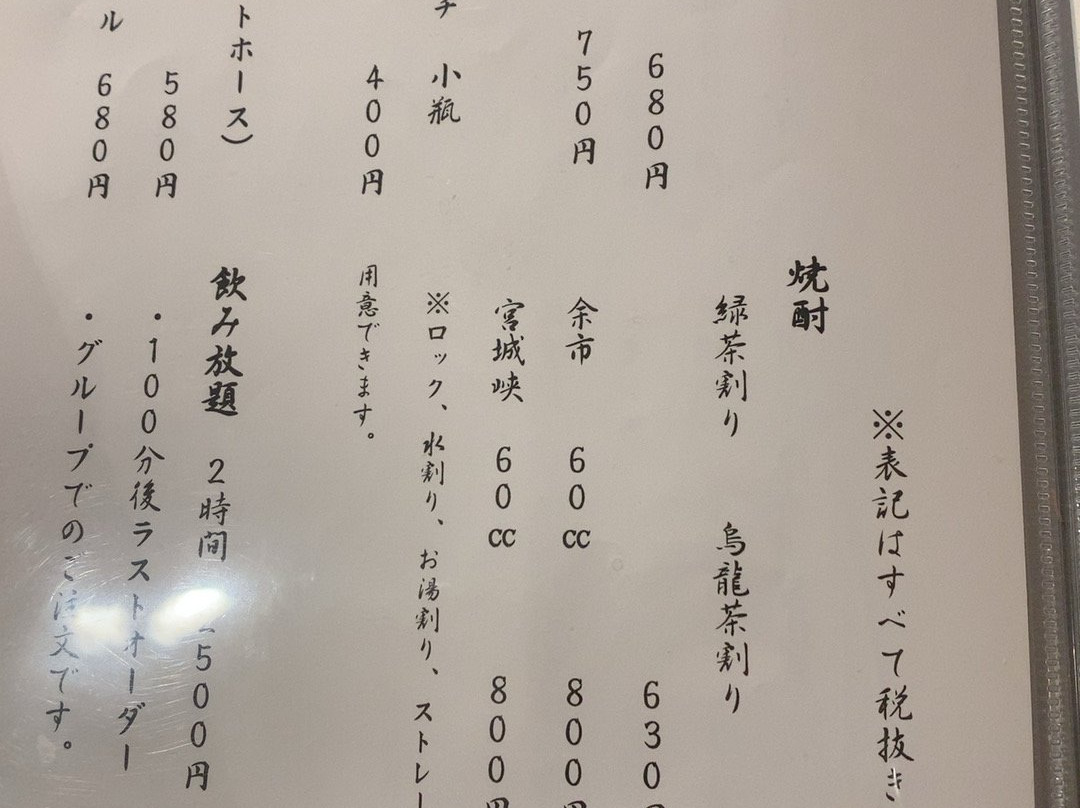 ※表記はすべて税抜き
焼酎
緑茶割り 烏龍茶割り
680円
630
750円
余市 60cc 800円
宮城峡 60cc 800円
小瓶
※ロック、水割り、お湯割り、ストレー
400円
用意できます。
トホース）
飲み放題 2時間 500円
580円
・100分後ラストオーダー
ル 680円
・グループでのご注文です。